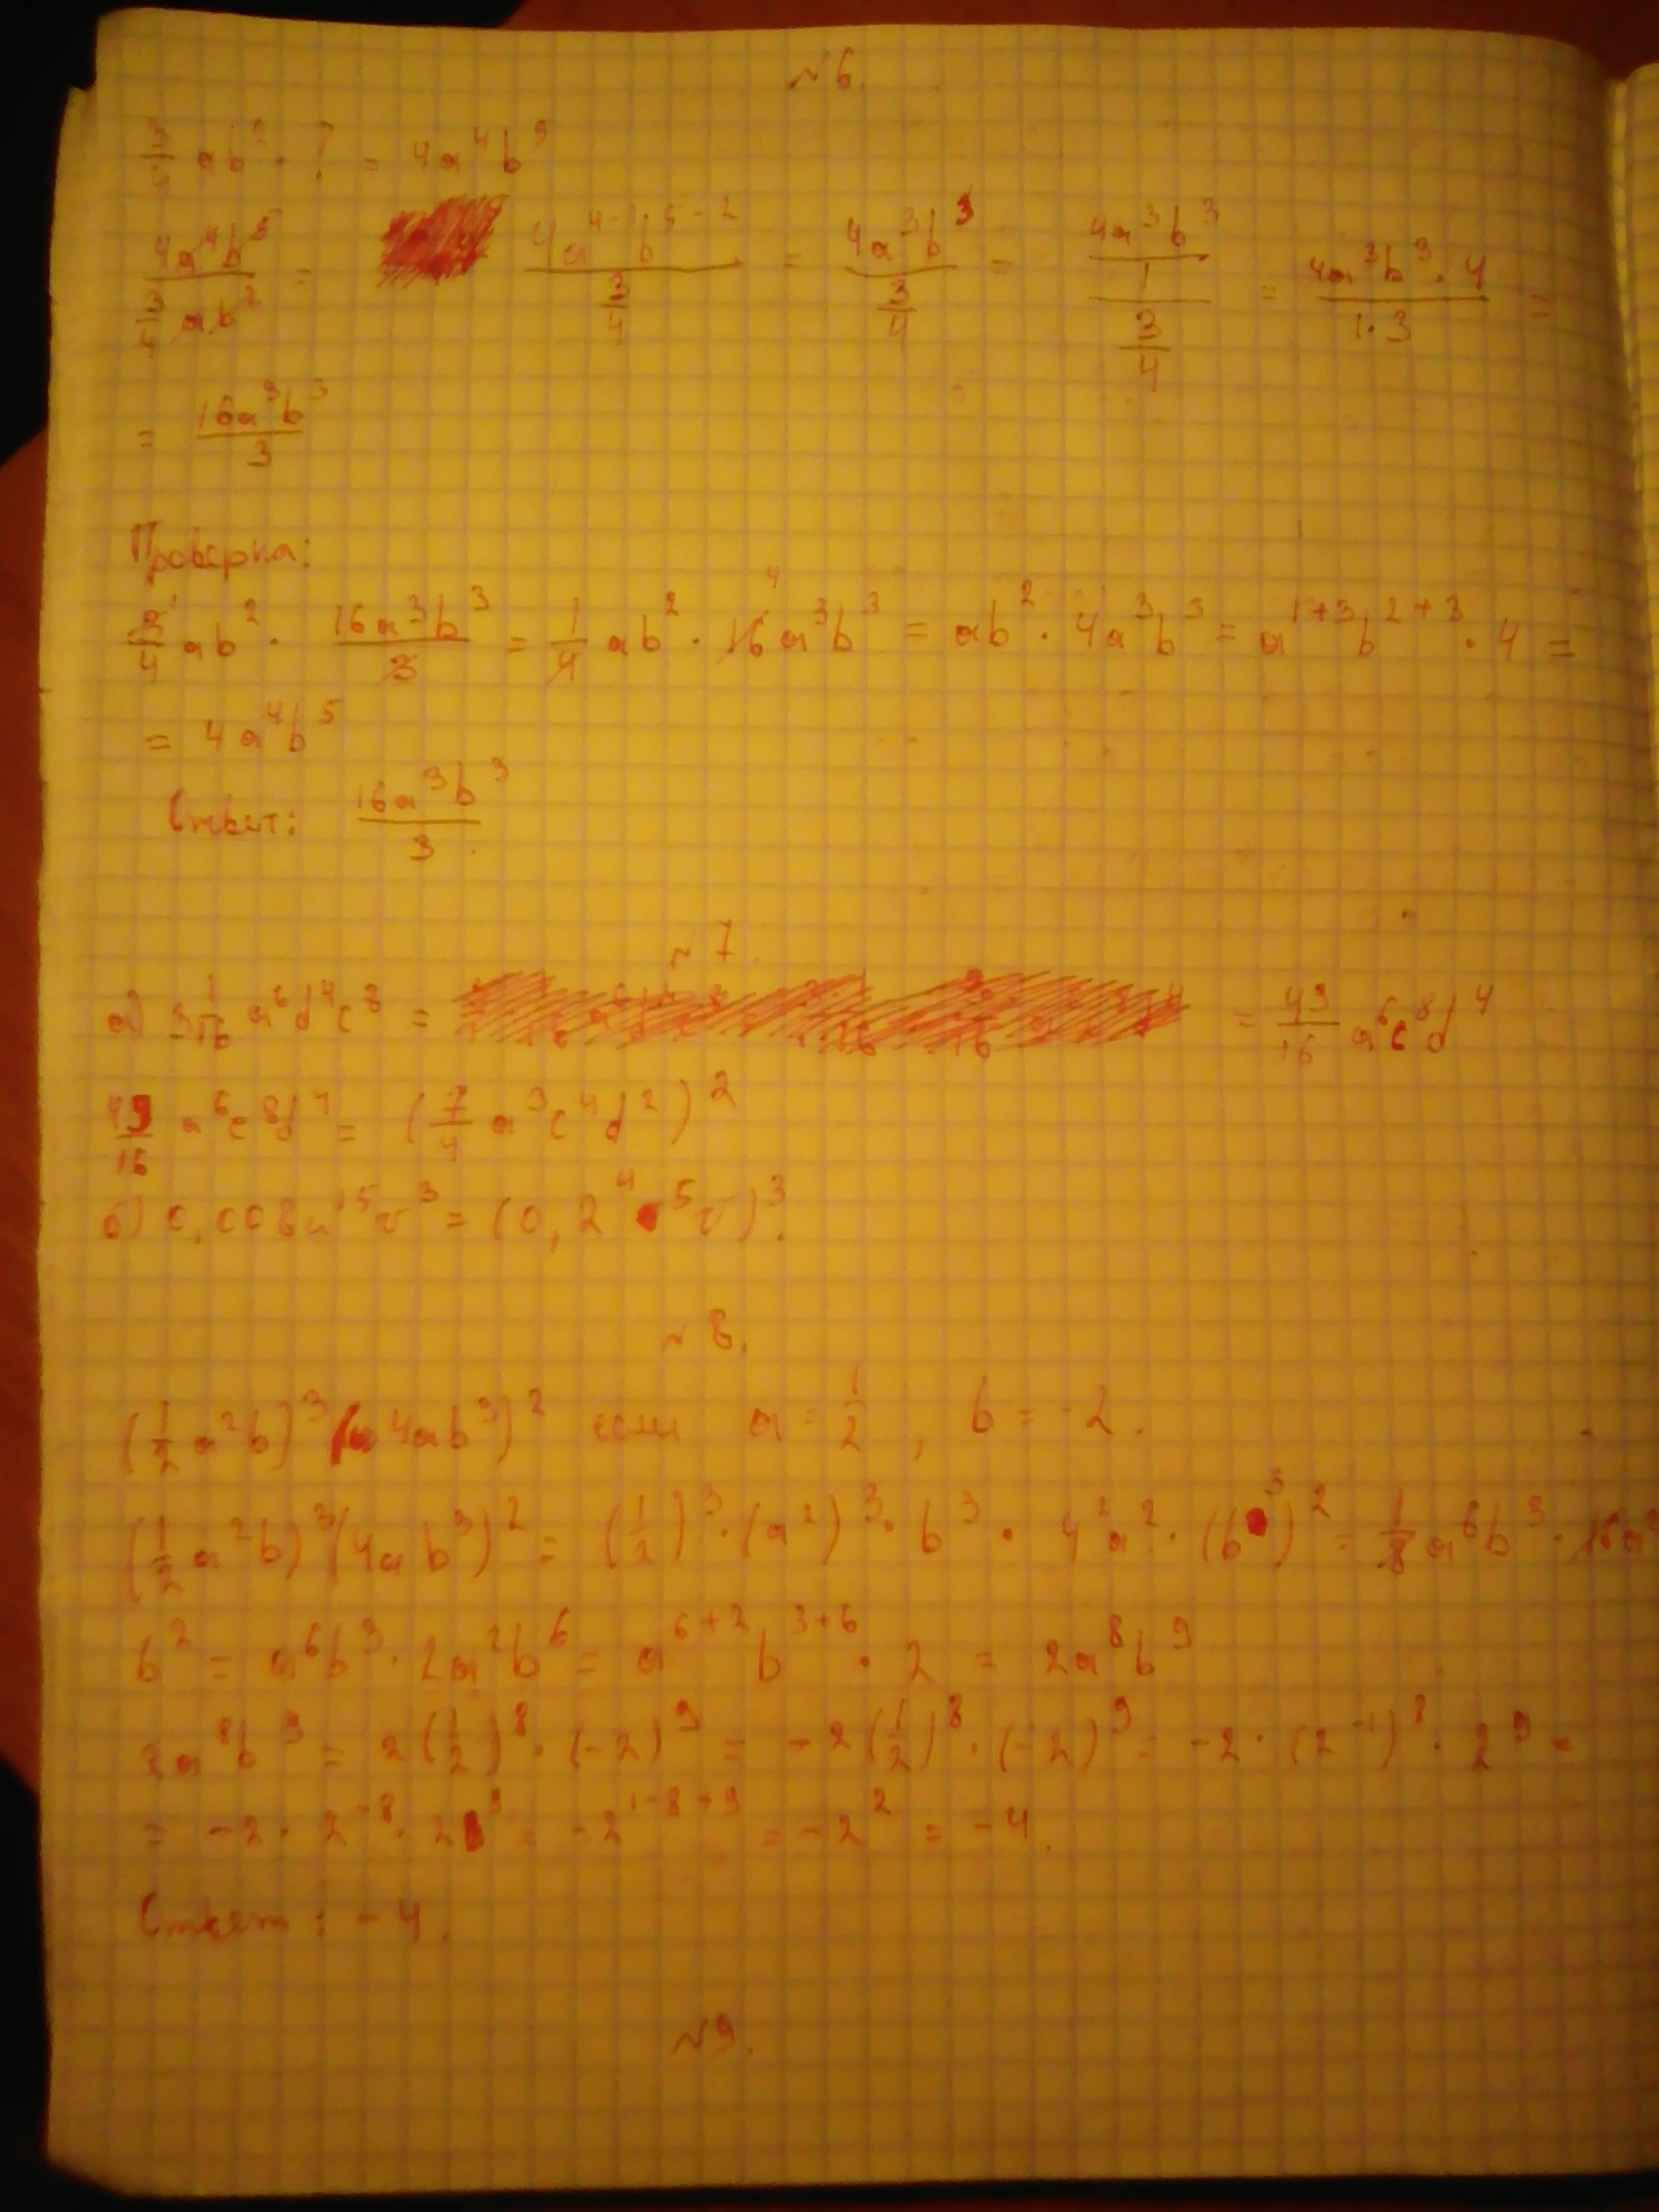 №6.
3/4 ab² · ? = 4a⁴b⁵
4a⁴b⁵ / (3/4 ab²) = 4a⁴⁻¹b⁵⁻² / (3/4) = 4a³b³ / (3/4) = (4a³b³ / 1) / (3/4) = 4a³b³ · 4 / 1 · 3 =
= 16a³b³ / 3
Проверка:
3/4 ab² · 16a³b³ / 3 = 1/4 ab² · 16a³b³ = ab² · 4a³b³ = a¹⁺³b²⁺³ · 4 =
= 4a⁴b⁵
Ответ: 16a³b³ / 3
№7.
а) 3 1/16 a⁶d⁴c⁸ = = 49/16 a⁶c⁸d⁴
49/16 a⁶c⁸d⁴ = (7/4 a³c⁴d²)²
б) 0,008u¹⁵v³ = (0,2 ⁵v)³.
№8.
(1/2 a²b)³(4ab³)² если a = 1/2, b = -2.
(1/2 a²b)³(4ab³)² = (1/2)³ · (a²)³ · b³ · 4²a² · (b³)² = 1/8 a⁶b³ · 16a²
b² = a⁶b³ · 2a²b⁶ = a⁶⁺²b³⁺⁶ · 2 = 2a⁸b⁹
2a⁸b⁹ = 2(1/2)⁸ · (-2)⁹ = -2(1/2)⁸ · (-2)⁹ = -2 · (2⁻¹)⁸ · 2⁹ =
= -2 · 2⁻⁸ · 2⁹ = -2¹⁻⁸⁺⁹ = -2² = -4.
Ответ: -4.
№9.